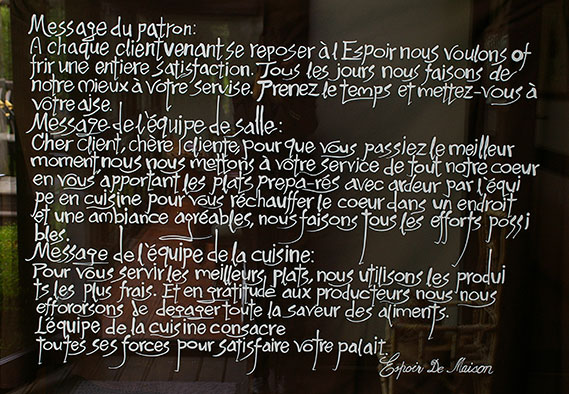 Message du patron:
A chaque client venant se reposer à l'Espoir nous voulons of
frir une entiere satisfaction. Tous les jours nous faisons de
notre mieux à vôtre servise. Prenez le temps et mettez-vous à
vôtre aise.
Message de l'équipe de salle:
Cher client, chère cliente, pour que vous passiez le meilleur
moment nous nous mettons à vôtre service de tout notre coeur
en vous apportant les plats prepa-rés avec ardeur par l'équi
pe en cuisine pour vous réchauffer le coeur dans un endroit
et une ambiance agréables, nous faisons tous les efforts possi
bles.
Message de l'équipe de la cuisine:
Pour vous servir les meilleurs, plats, nous utilisons les produi
ts les plus frais. Et en gratitude aux producteurs nous nous
effororsons de degager toute la saveur des aliments.
L'équipe de la cuisine consacre
toutes ses forces pour satisfaire vôtre palait.
Espoir De Maison